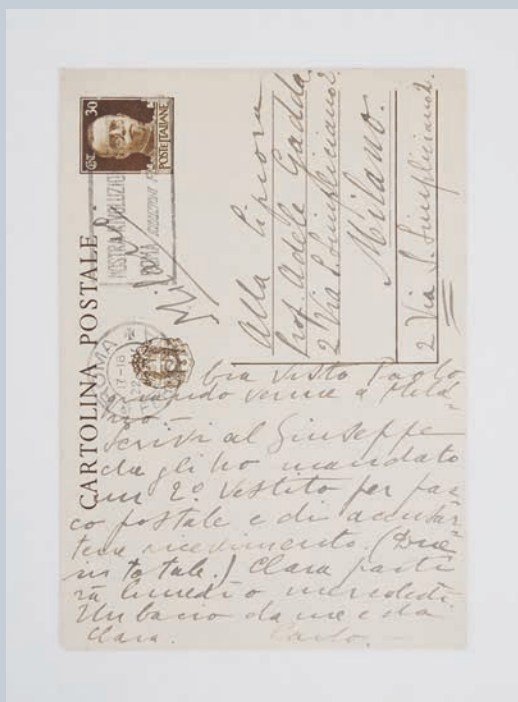 CARTOLINA POSTALE
Cent. 30
POSTE ITALIANE
MOSTRA RIVOLUZIO
ROMA
ROMA
17-18
22
Alla Signora
Prof. Adele Gadda.
2 Via S. Simpliciano 2
Milano.
2 Via S. Simpliciano 2.
visto Paolo
quando venne a Mila-
no -
Scrivi al Giuseppe
che gli ho mandato
un 2º vestito per pac
co postale e di accusar-
tene ricevimento. (Due
in totale.) Clara parti
rà lunedì o mercoledì.
Un bacio da me e da
Clara. Carlo. -